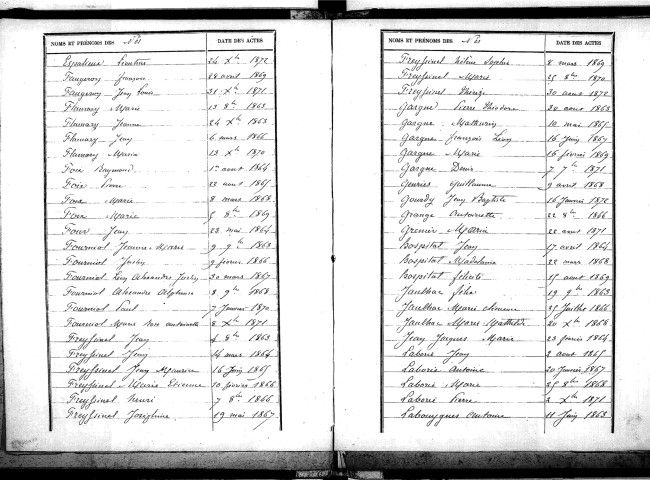 NOMS ET PRÉNOMS DES Nés DATE DES ACTES
24 Xbre 1872
Faugeroy François 28 avril 1869
Faugeroy Jean Louis 31 Xbre 1871
Flamary Marie 13 8bre 1863
Flamary Jeanne 24 Xbre 1863
Flamary Jean 6 mars 1866
Flamary Maria 13 Xbre 1870
Foix Raymond 1er aout 1864
Foix Pierre 22 aout 1865
Foix Marie 8 mars 1868
Foix Marie 5 8bre 1869
Four Jean 23 mai 1864
Fourniol Jeanne Marie 9 9bre 1863
Fourniol Justin 9 février 1866
Fourniol Louis Alexandre Justin 30 mars 1867
Fourniol Alexandre Alphonse 8 9bre 1868
Fourniol Paul 7 Janvier 1870
Fourniol Marie Rose Antoinette 8 Xbre 1871
Freyssinel Jean 4 8bre 1863
Freyssinel Jean 14 mars 1864
Freyssinel Jean Maurice 16 Juin 1865
Freyssinel Marie Etienne 10 février 1866
Freyssinel henri 7 8bre 1866
Freyssinel Joséphine 19 mai 1867
NOMS ET PRÉNOMS DES Nés DATE DES ACTES
Freyssinel Sophie 8 mars 1869
Freyssinel Marie 25 8bre 1870
Freyssinel 30 aout 1872
Gargne Pierre Théodore 20 aout 1863
Gargne Mathurin 10 mai 1865
Gargne François Léon 16 Juin 1867
Gargne Marie 16 février 1869
Gargne Denis 7 7bre 1871
Genries Guillaume 9 avril 1868
Gouady Jean Baptiste 16 Janvier 1872
Grange Antoinette 22 8bre 1866
Grenier Maria 22 aout 1871
hospital Jean 17 avril 1864
hospital Madeleine 22 mars 1868
hospital félicité 25 aout 1869
Jaulhac félix 19 9bre 1863
Jaulhac Marie 25 Juillet 1866
Jaulhac Marie Mathilde 20 Xbre 1868
Jean Jacques Marie 23 février 1864
Laborie Jean 2 aout 1865
Laborie Antoine 20 Janvier 1867
Laborie Marie 25 8bre 1868
Laborie Pierre 2 Xbre 1871
Labouygues Antoine 11 Juin 1863